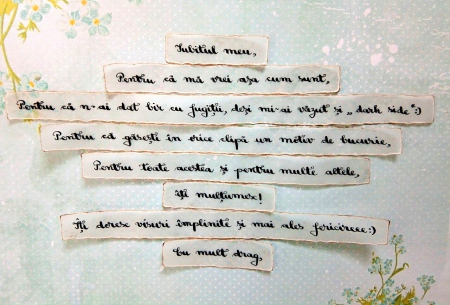 Iubitul meu,
Pentru că mă vrei așa cum sunt,
Pentru că n-ai dat bir cu fugiții, deși mi-ai văzut și „dark side":)
Pentru că găsești în orice clipă un motiv de bucurie,
Pentru toate acestea și pentru multe altele,
îți mulțumesc!
Îți doresc visuri împlinite și mai ales fericireee:)
Cu mult drag,